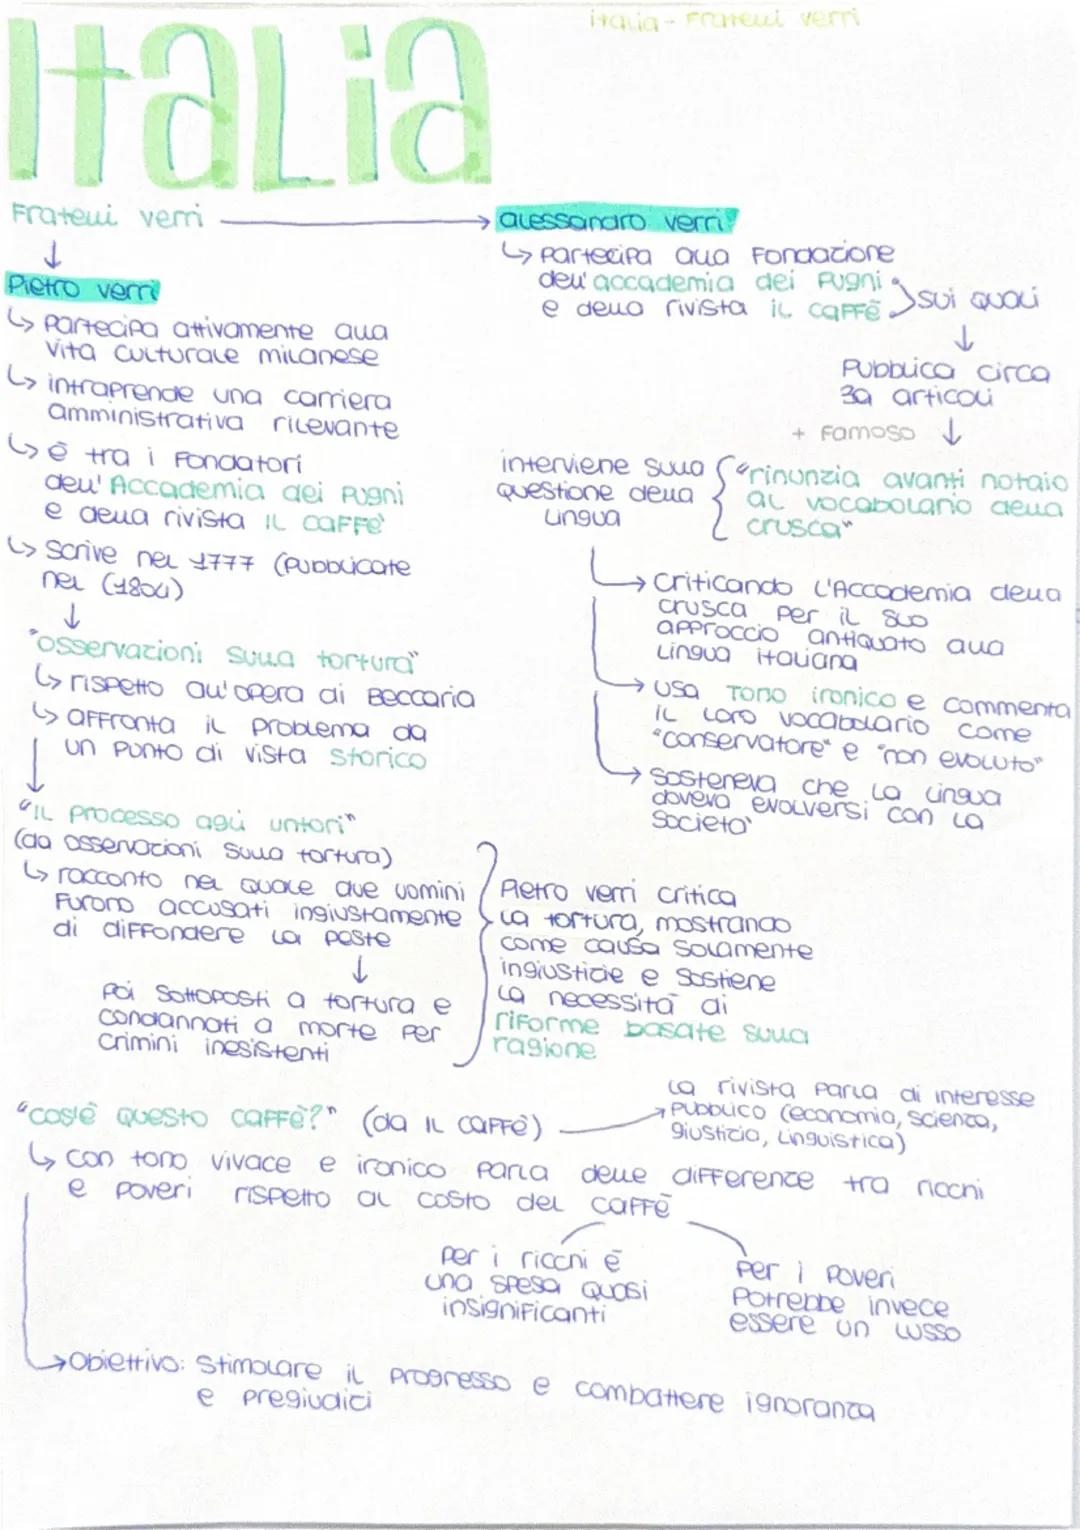 italia - Fratelli verri
Italia
Fratelli verri
Pietro verri
Partecipa attivamente alla
vita culturale milanese
intraprende una carriera
amministrativa rilevante
è tra i Fondatori
dell'Accademia dei Pugni
e della rivista IL CAFFÈ
Scrive nel 1777 (Pubblicate
nel (1804)
"osservazioni sulla tortura"
rispetto all'opera di Beccaria
affronta il problema da
un punto di vista storico
"IL processo agli untori"
(da osservazioni sulla tortura)
racconto nel quale due uomini
Furono accusati ingiustamente
di diffondere la peste
Poi Sottoposti a tortura e
condannati a morte per
crimini inesistenti
Pietro verri critica
la tortura, mostrando
come causa solamente
ingiustizie e sostiene
la necessità di
riforme basate sulla
ragione
alessandro verri
Partecipa alla Fondazione
dell'accademia dei Pugni
e della rivista il caffè
sui quali
Pubblica circa
30 articoli
+ Famoso
interviene sulla
questione della
Lingua
"rinunzia avanti notaio
al vocabolario della
crusca"
Criticando L'Accademia della
crusca per il suo
approccio antiquato alla
Lingua italiana
usa Tono ironico e commenta
il loro vocabolario come
"conservatore" e "non evoluto"
Sosteneva che la lingua
doveva evolversi con la
società
"cos'è questo caffè?" (da IL CAFFÈ)
la rivista parla di interesse
Pubblico (economia, scienza,
giustizia, Linguistica)
con tono vivace e ironico parla delle differenze tra ricchi
e poveri rispetto al costo del caffè
per i ricchi è
una spesa quasi
insignificanti
Per i Poveri
Potrebbe invece
essere un lusso
Obiettivo: Stimolare il progresso e combattere ignoranza
e pregiudizi